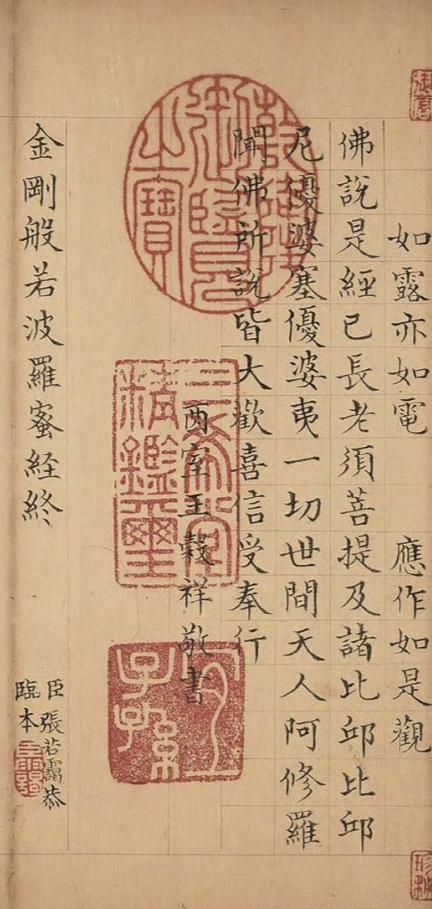 如露亦如電　應作如是觀
佛說是經已長老須菩提及諸比邱比邱
尼優婆塞優婆夷一切世間天人阿修羅
聞佛所說皆大歡喜信受奉行
酉室王穀祥敬書
金剛般若波羅蜜経終
臣張若靄恭
臨本
乾隆御覽之寶
三希堂精鑑璽
宜子孫